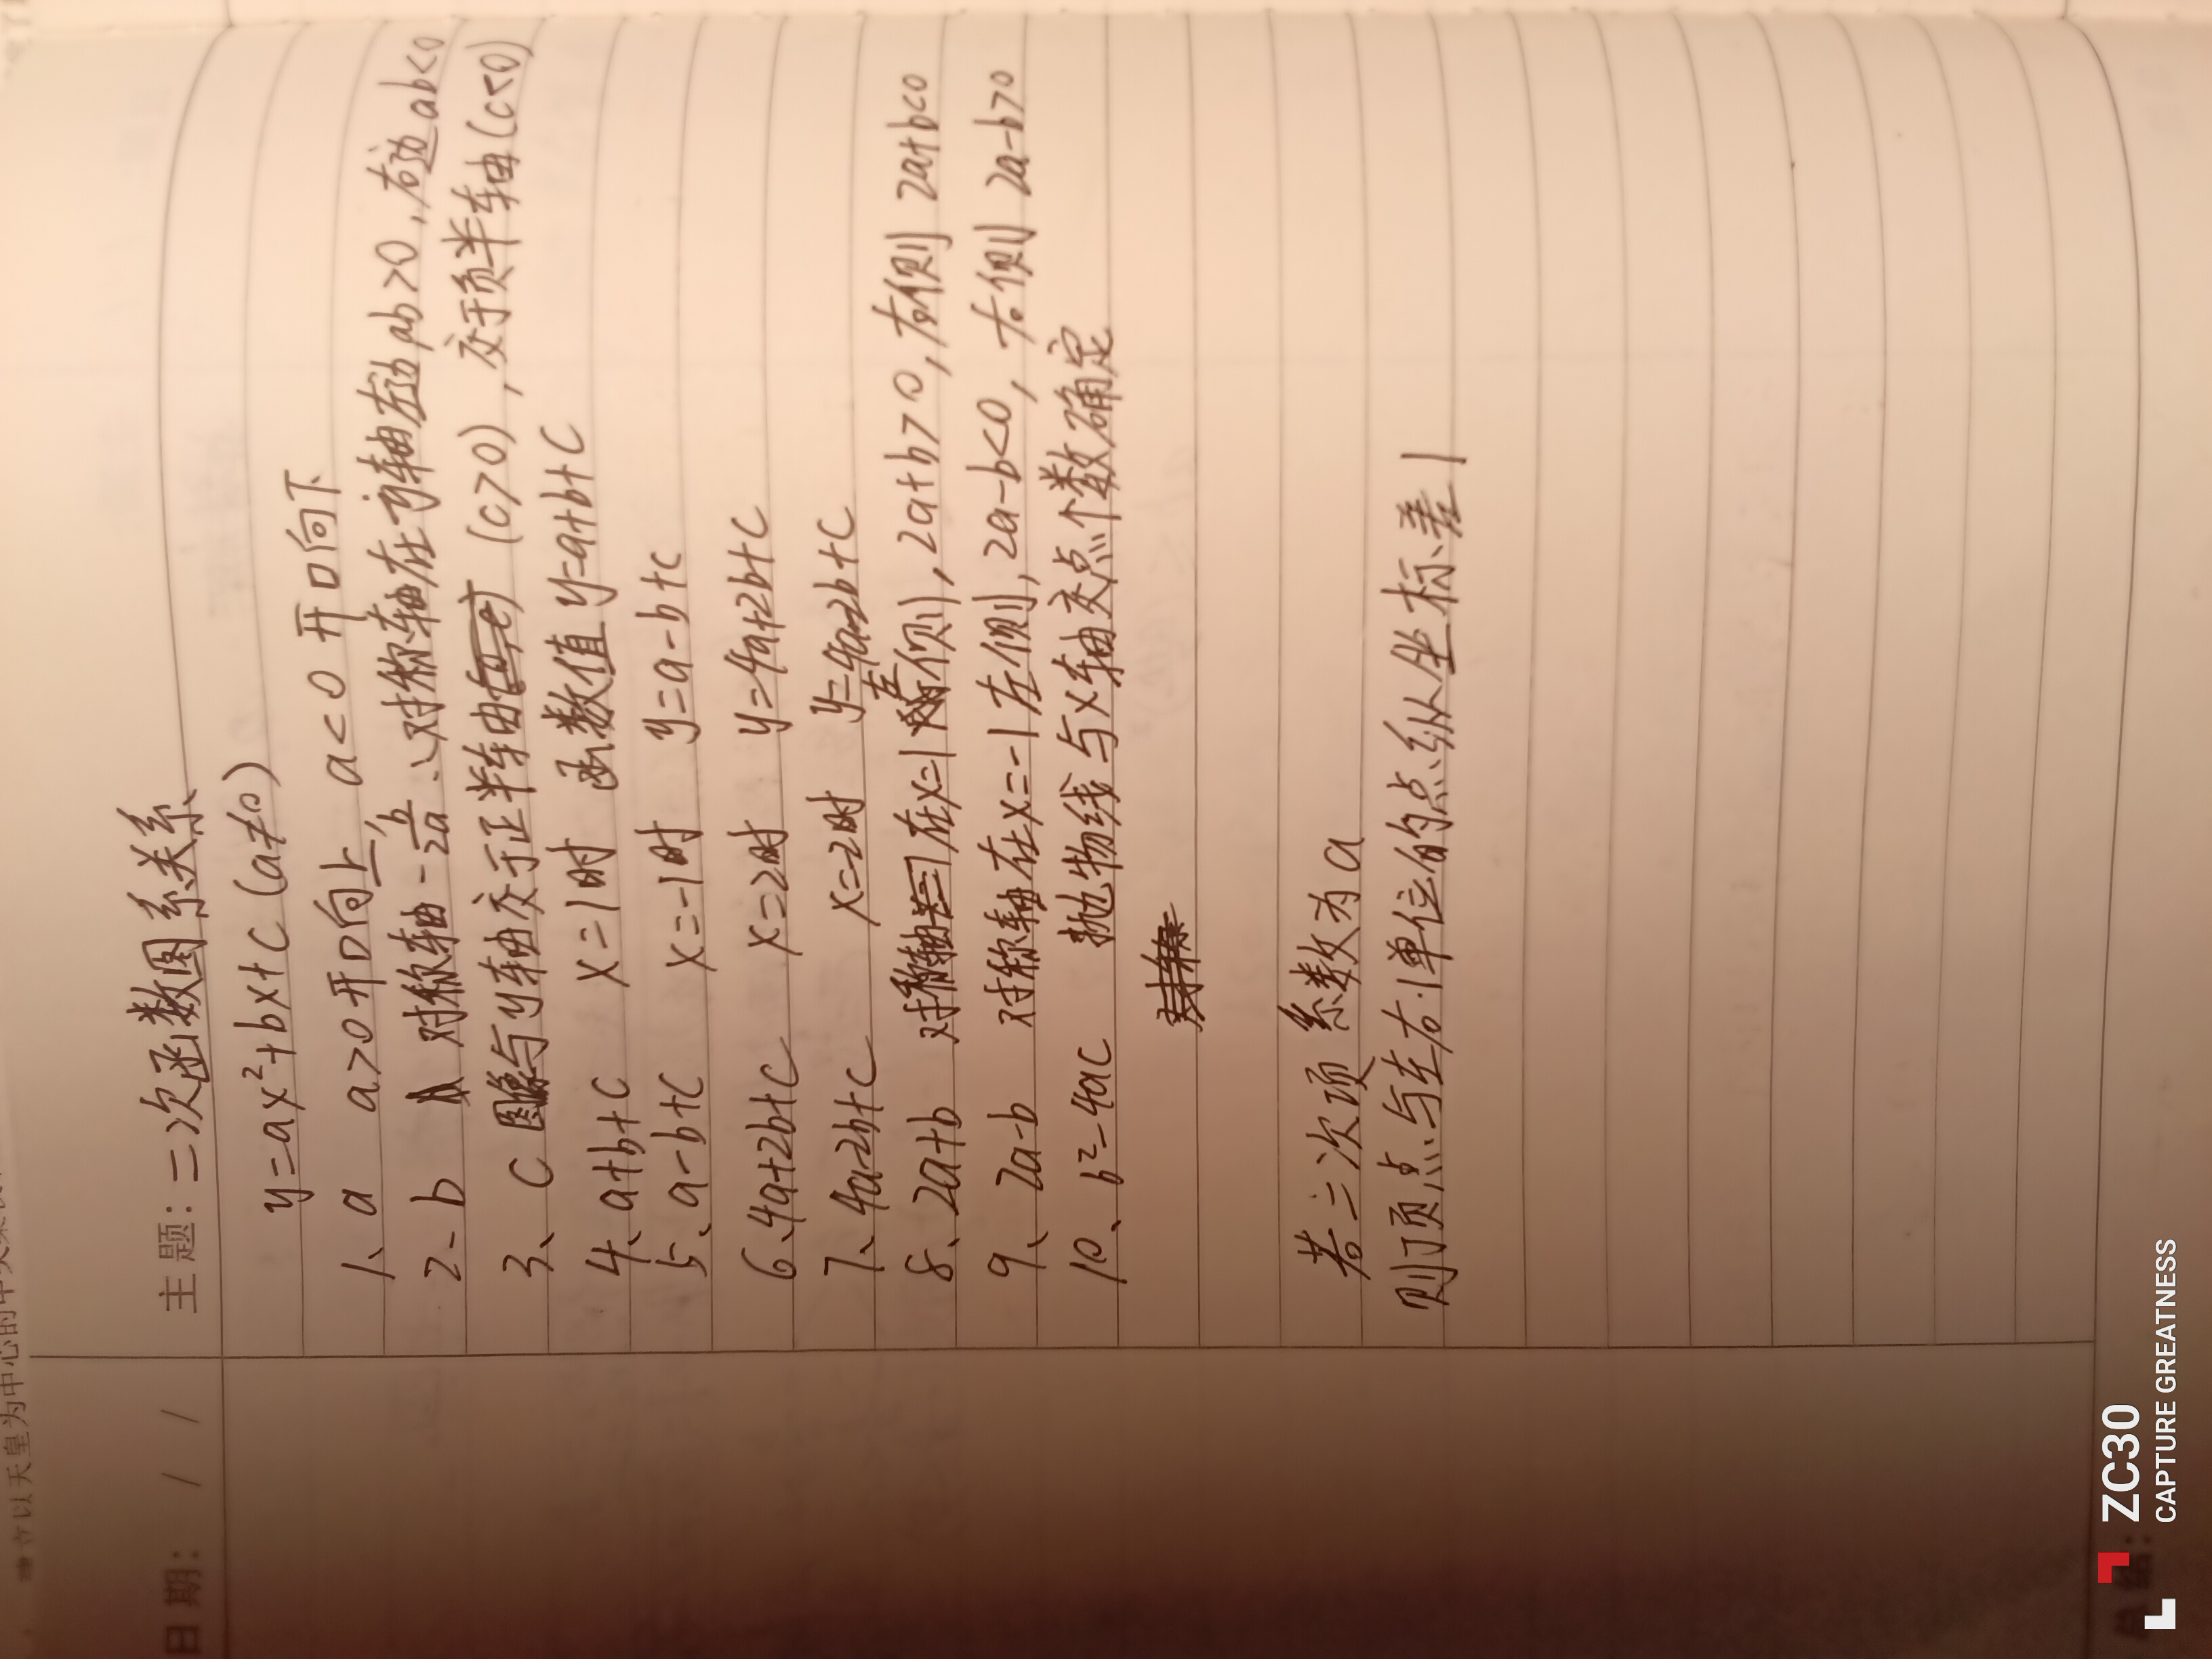 主题：二次函数图系关系
y=ax²+bx+c (a≠0)
1、a a>0开口向上, a<0 开口向下
2、b 对称轴 -b/2a ∴对称轴在y轴左边ab>0，右边ab<0
3、c 图像与y轴交于正半轴 (c>0)，交于负半轴(c<0)
4、a+b+c x=1时 函数值 y=a+b+c
5、a-b+c x=-1时 y=a-b+c
6、4a+2b+c x=2时 y=4a+2b+c
7、4a-2b+c x=-2时 y=4a-2b+c
8、2a+b 对称轴在x=1左侧，2a+b>0，右侧 2a+b<0
9、2a-b 对称轴在x=-1左侧，2a-b<0，右侧 2a-b>0
10、b²-4ac 抛物线与x轴交点个数确定
若二次项系数为a
则顶点与左右1单位的点纵坐标差1
日期： / /
总结：
ZC30
CAPTURE GREATNESS